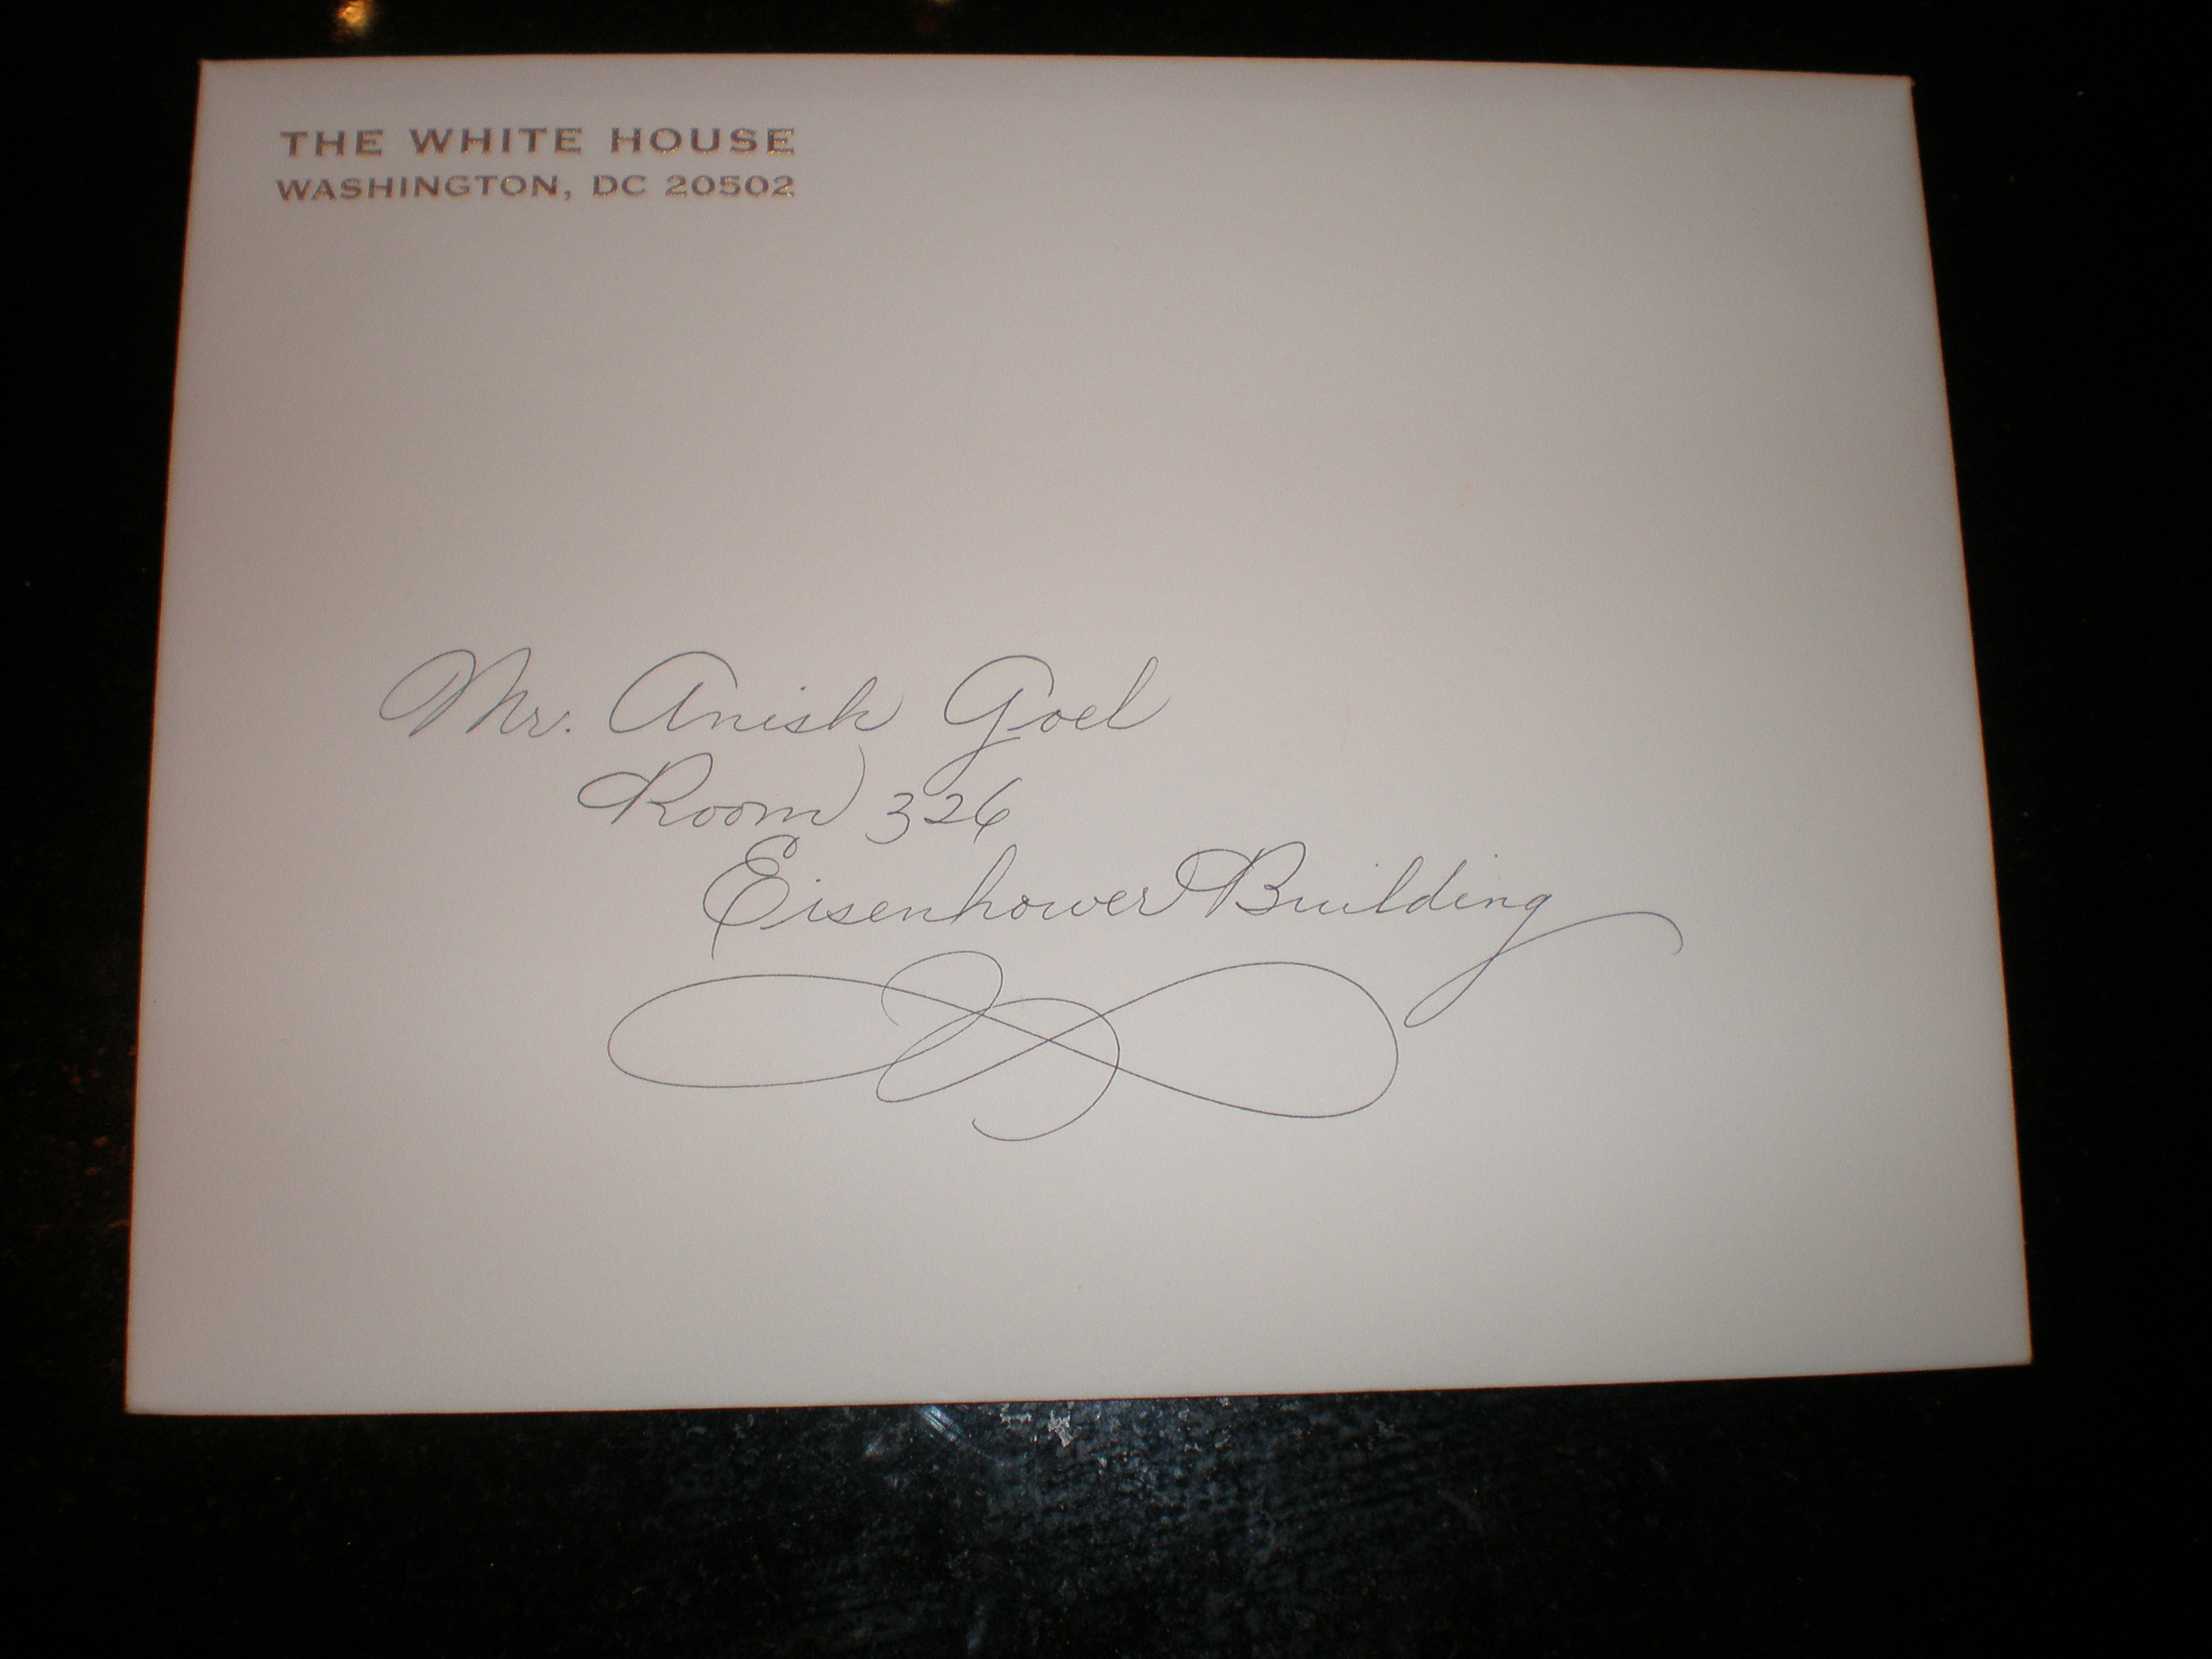 THE WHITE HOUSE
WASHINGTON, DC 20502
Mr. Anish Goel
Room 326
Eisenhower Building